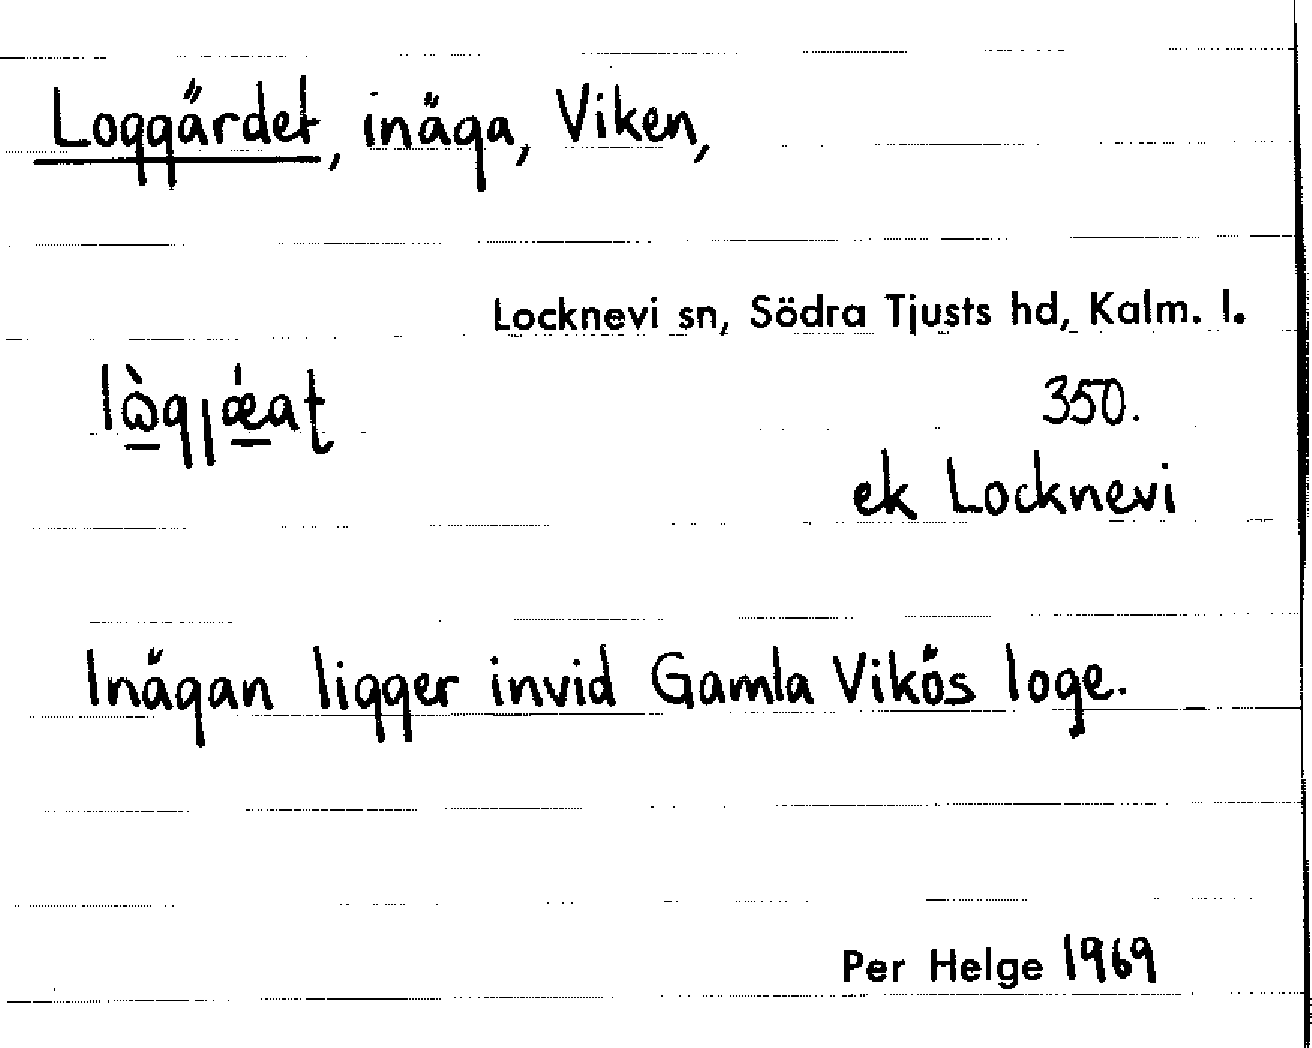 Loggärdet, inäga, Viken,
Locknevi sn, Södra Tjusts hd, Kalm. l.
350.
ek Locknevi
Inägan ligger invid Gamla Vikös loge.
Per Helge 1969